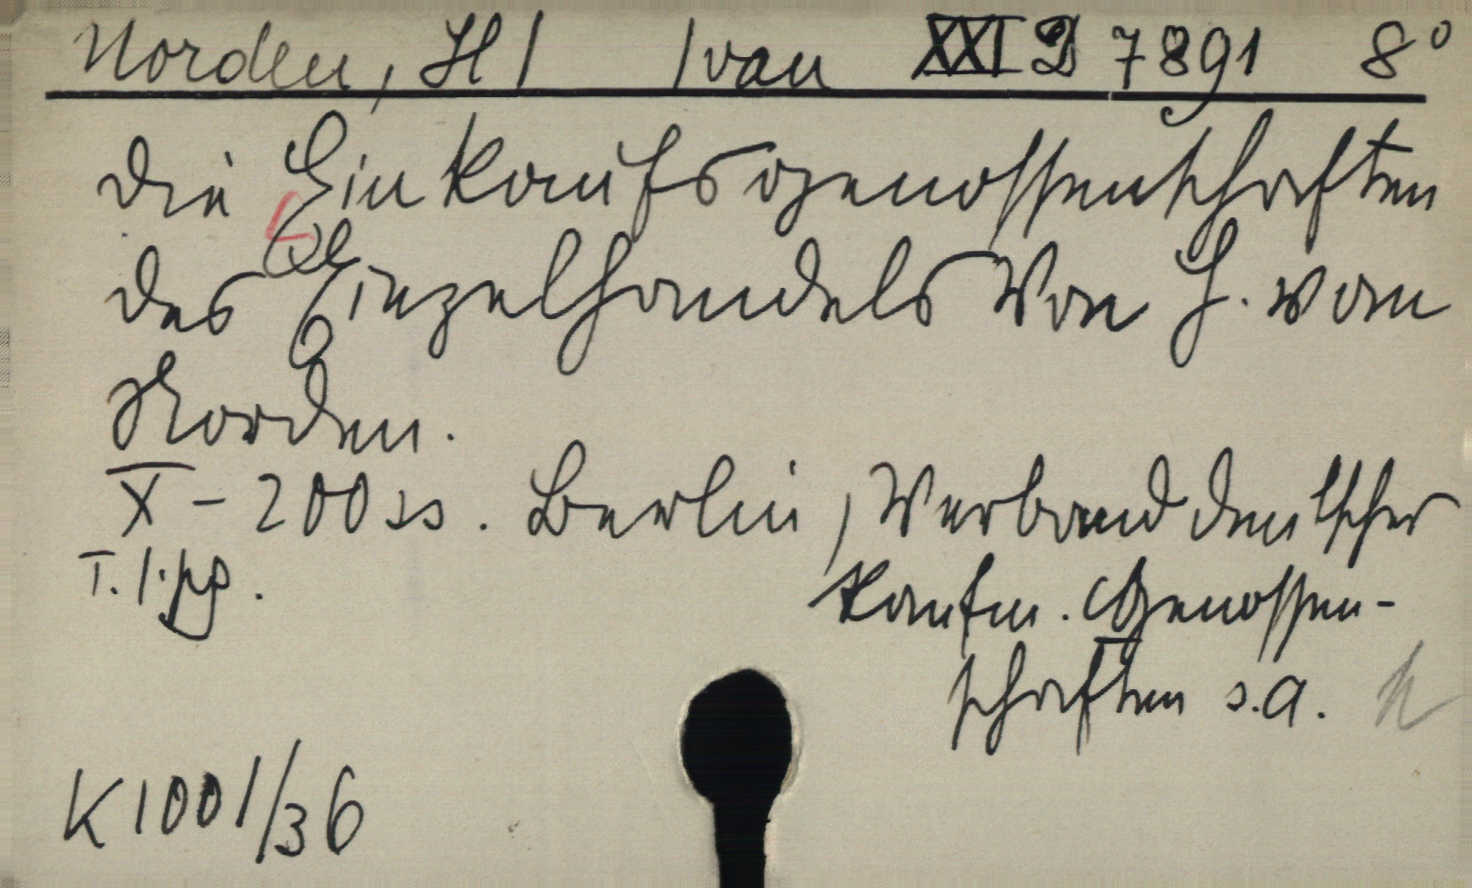 Norden, H/ /van XXI D 7891 8°
Die Einkaufsgenossenschaften
des Einzelhandels Von H. van
Norden.
X - 200 ss. Berlin, Verband deutscher
T. 1. pg. Kaufm. Genossen-
schaften s.a.
K 1001/36